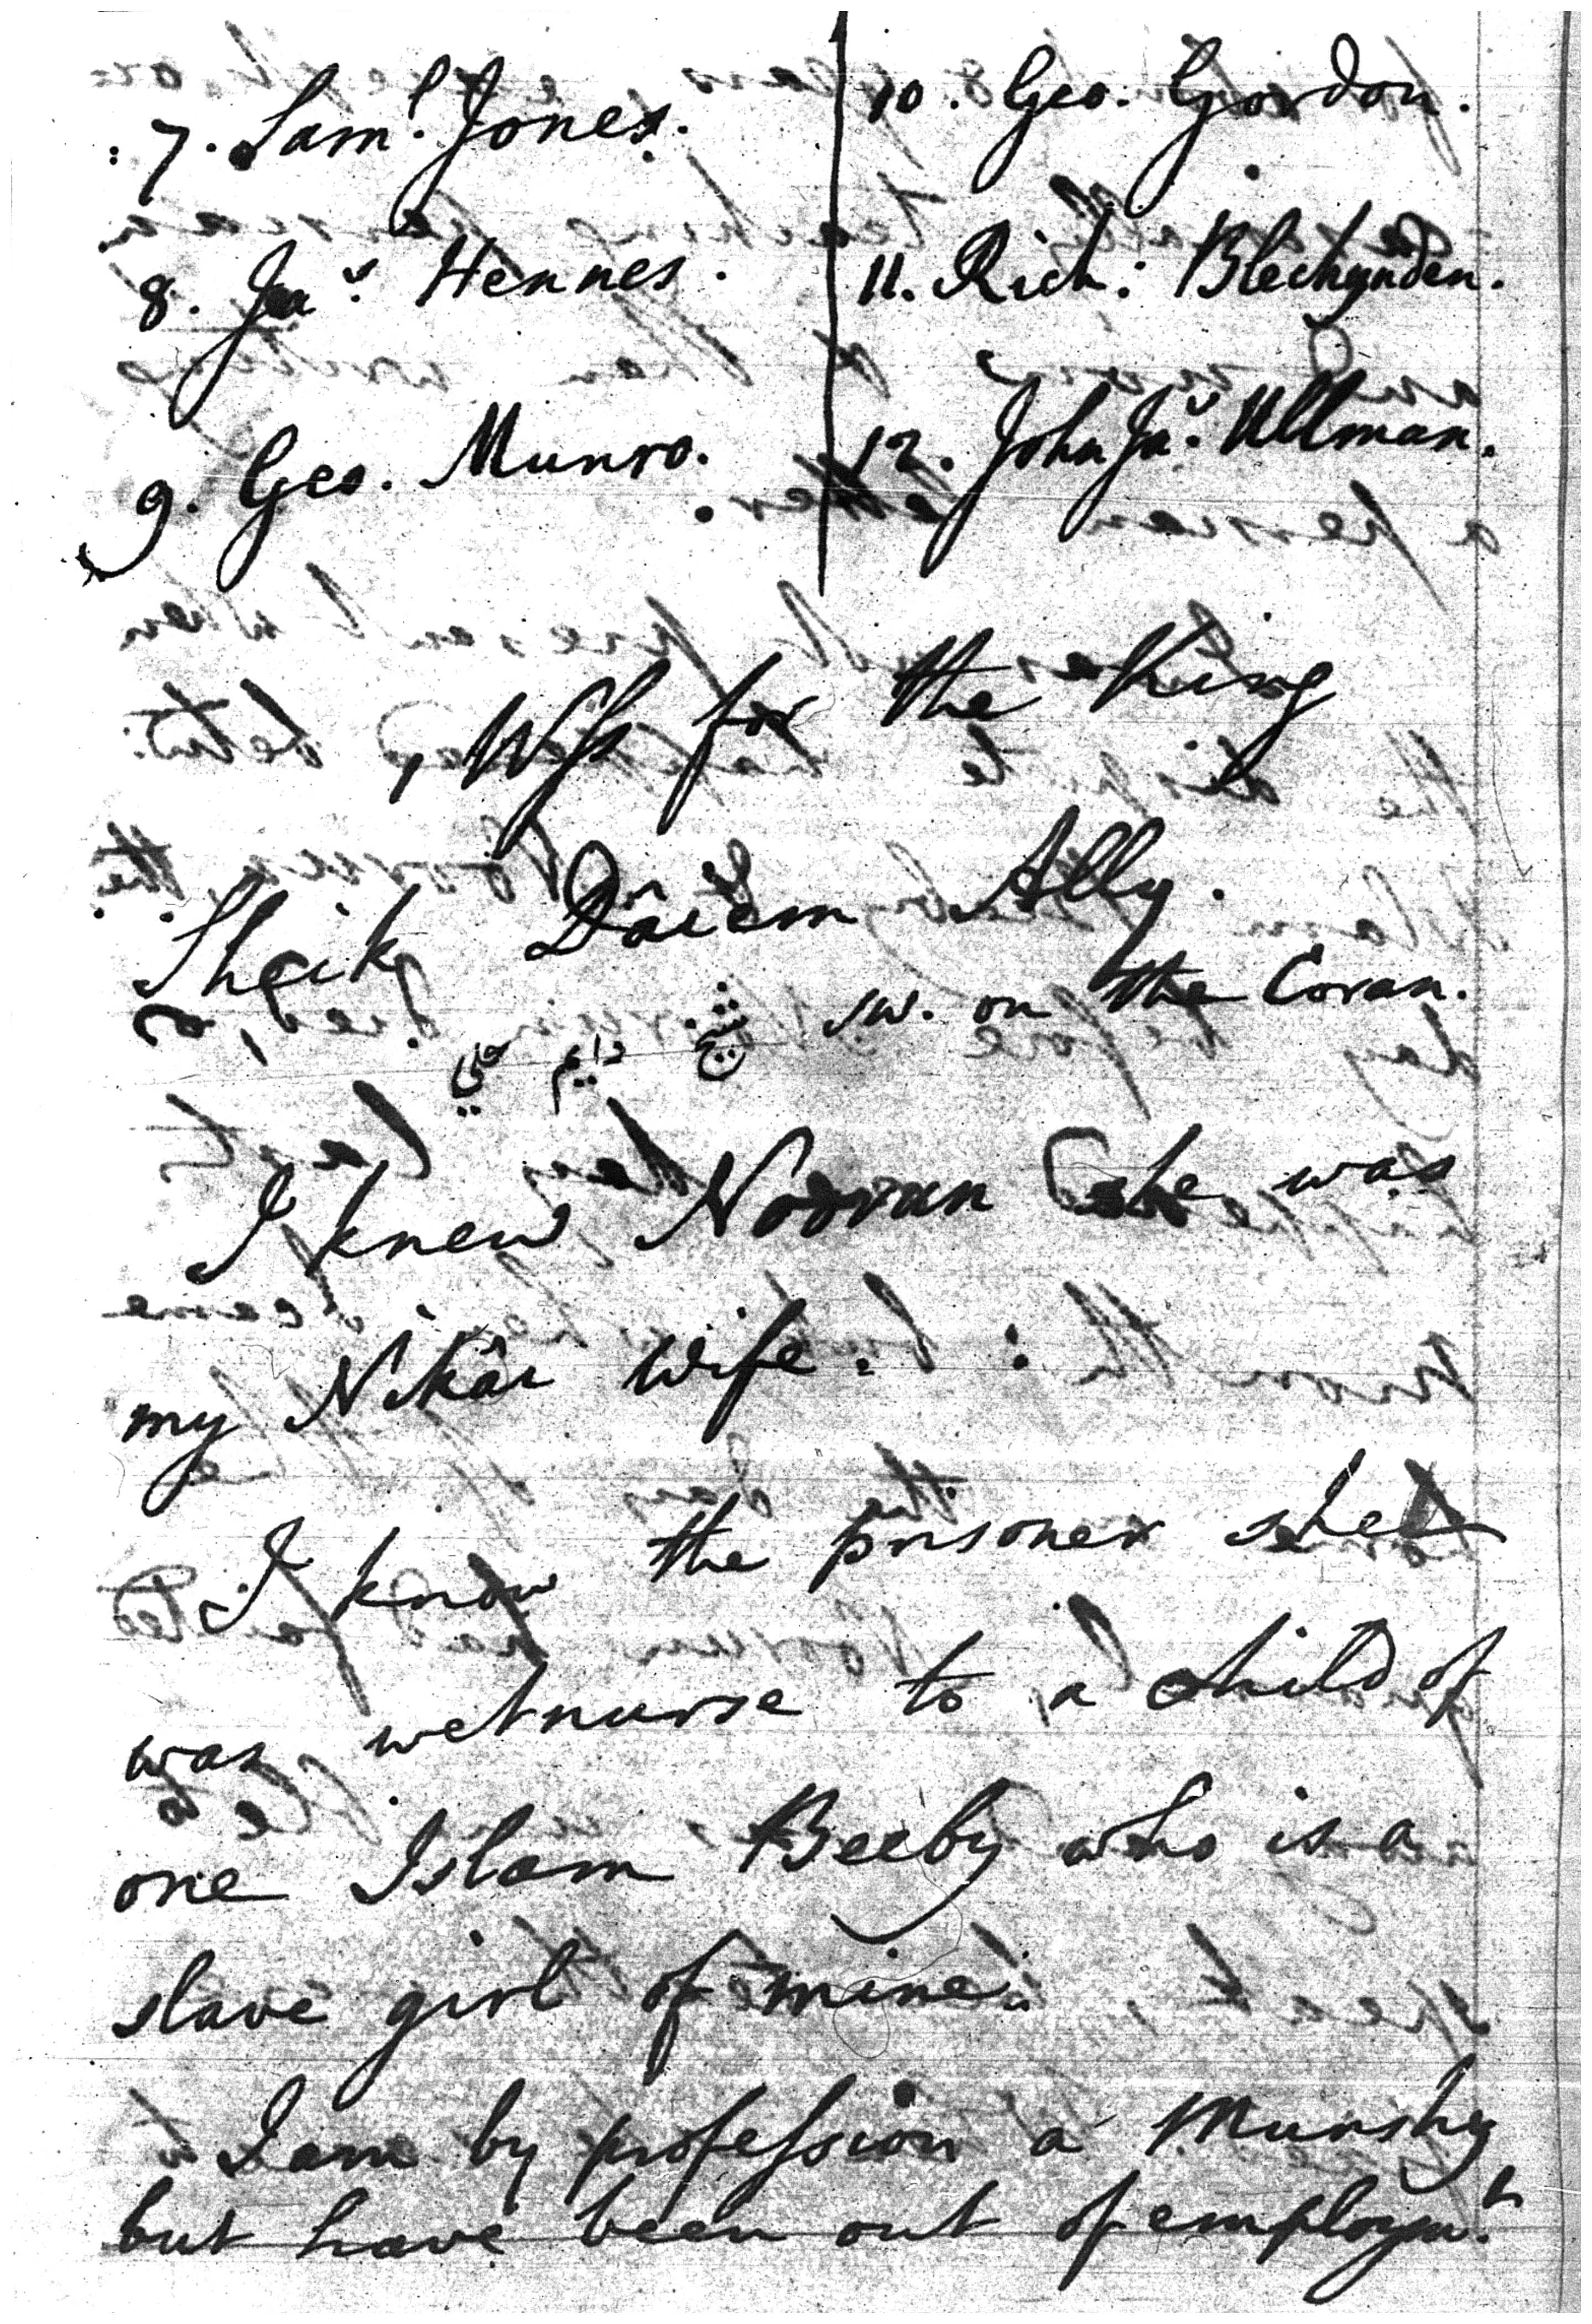 7. Sam.l Jones.
8. Ja.s Hennes.
9. Geo. Munro.
10. Geo. Gordon.
11. Rich: Blechynden.
12. John Ja.s Ullman.
Wss for the King
Sheik Dâiem Ally.
شيخ دايم علي sw. on the Coran.
I knew Nooran she was
my Nikâi wife.
I know the prisoner she
was wetnurse to a child of
one Islam Beeby who is a
slave girl of mine.
I am by profession a Munshy
but have been out of employm.t